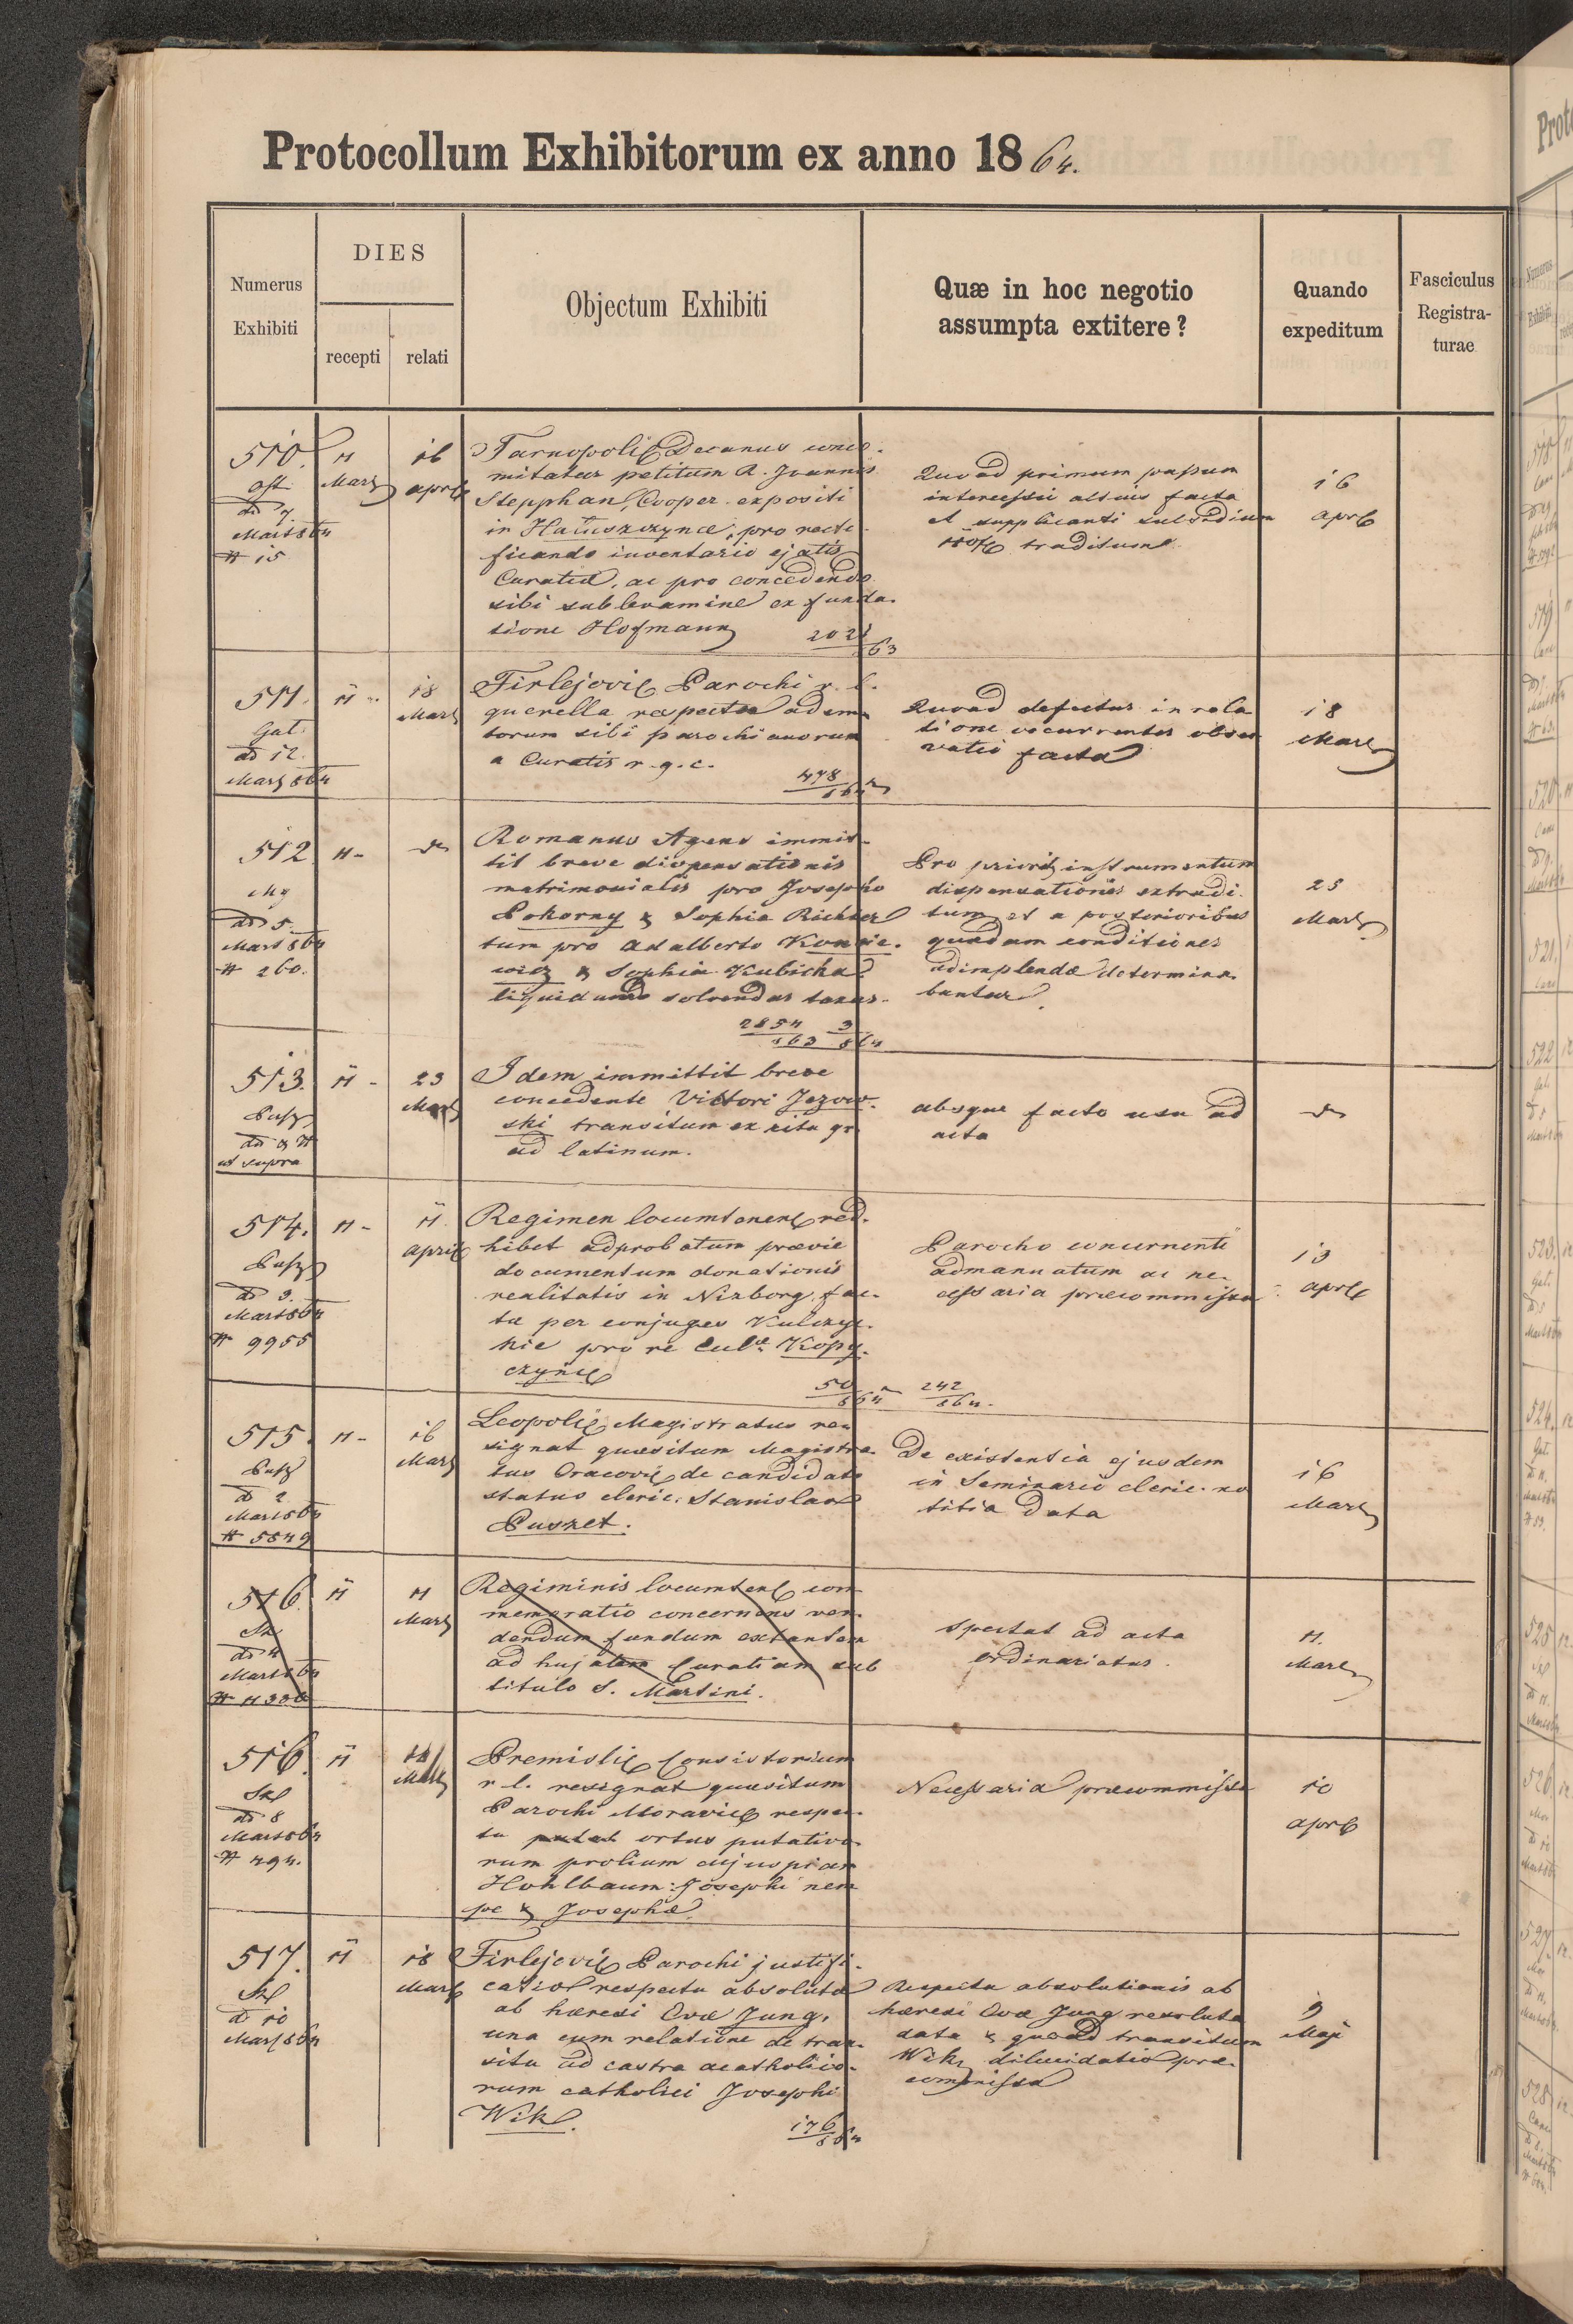 Protocollum Exhibitorum ex anno 1864.
Numerus
Exhibiti
DIES
recepti
relati
Objectum Exhibiti
Quæ in hoc negotio
assumpta extitere?
Quando
expeditum
Fasciculus
Registra-
turae
510.
11
Marz
16
April
Tarnopoli Decanus conco-
mitatur petitum R. Joannis
Stepphan, Cooper. expositi
in Hałuszczynce, pro recti-
ficando inventario ejatis
Curatiæ, ac pro concedendo
sibi sublevamine ex funda-
tione Hofmann
Quoad primum passum
intercessio altius facta
et supplicanti subsidium
traditum
16
April
511.
11
18
Mart
Gal.
ad 12
Mart 864
Firlejovic Parochi r. l.
querella respectu adem-
torum sibi parochianorum
a Curatis r. g. c.
478
Quoad defectus in rela
tione occurrentes obser
vatio facta
18
Mart
512
11
ad 5.
Mart 864
# 260.
Romanus Agens immit-
tit breve dispensationis
matrimonialis pro Josepho
Pokorny & Sophia Richter
tum pro Adalberto
& Sophia Kubicka
liquidando solvendas taxas.
2854 3
863 864
Pro prioris instrumentum
dispensationis extradi-
tum et a posterioribus
quædam conditiones
adimplendæ determina
buntur.
23
Mart
513.
11
23
Mart
ut supra
Idem immittit breve
concedente Victori Jezow-
ski transitum ex ritu gr
ad latinum.
absque facto usu ad
acta
514.
11
11
April
ad 3.
Mart 864
# 9955
Regimen locumtenens red-
hibet adprobatum prævie
documentum donationis
realitatis in Nizborg fac-
ta per conjuges Kulczyc-
kie pro re Kopy-
czynce
50 242
864 864.
Parocho concernenti
admanuatum ac ne-
cessaria præcommissa
13
April
515.
11
16
Mart
ad 2
Mart 864
# 5549
Leopoli Magistratus re-
signat quæsitum Magistra-
tus Cracovi de candidato
status cleric. Stanislao
Puszet.
De existentia ejusdem
in Seminario cleric. no
titia data
16
Mart
516.
11
11
Mart
Regiminis locumten com
memoratio concernens ven-
dendum fundum extantem
ad hujatem Curatiam sub
titulo S. Martini.
Spectat ad acta
ordinariatus.
11.
Mart
516.
11
ad 8
Mart 864
# 494.
Premisli Consistorium
r. l. resignat quæsitum
Parochi Moravic respec-
tu ortus putativo-
rum prolium cujuspiam
Hohlbaum: Josephi nem
pe & Josephæ.
Necessaria præcommissa
10
April
517.
11
18
Mart
ad 10
Mart 864
Firlejovic Parochi justifi-
catio respectu absolutæ
ab hæresi Evæ Jung,
una cum relatione de tran-
situ ad castra acatholico-
rum catholici Josephi
Wik.
176
864
Respectu absolutionis ab
hæresi Evæ Jung resoluta
data & quoad transitum
Wik dilucidatio præ-
commissa
9
Maji